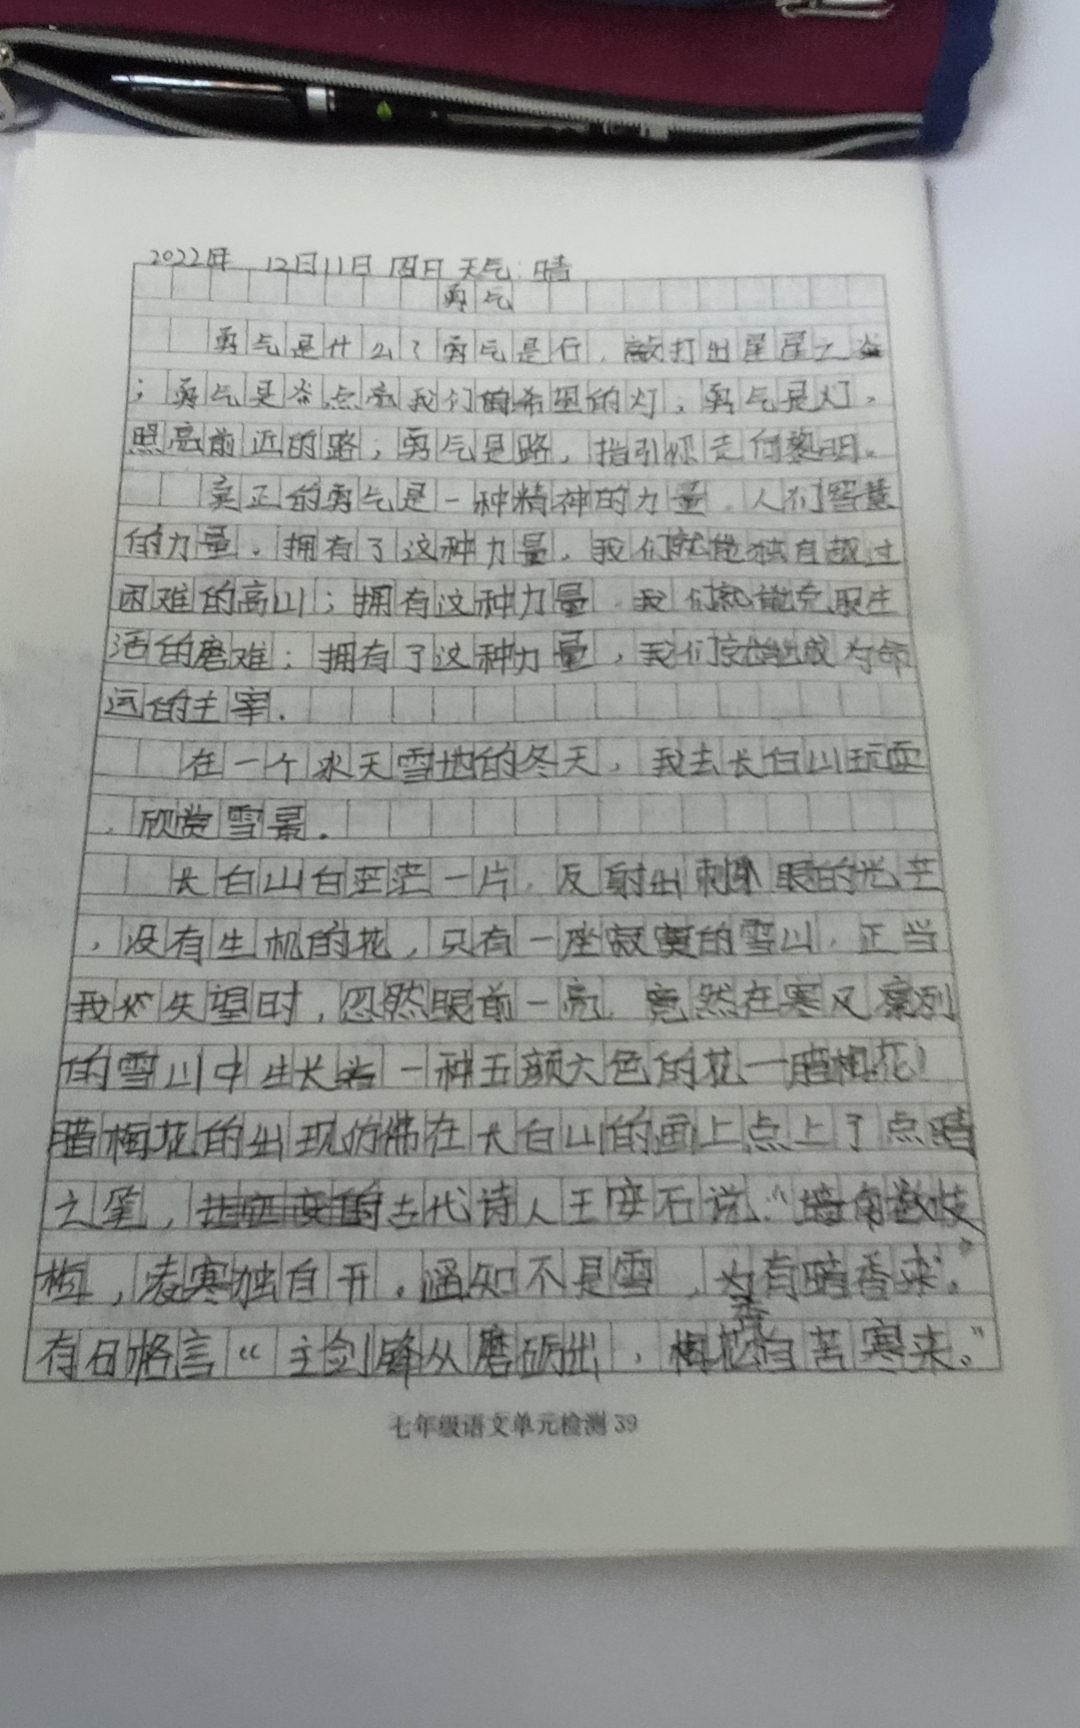 2022年 12月11日 周日 天气:晴
勇气
勇气是什么?勇气是行,敲打出星星之
;勇气是 点亮我们的希望的灯,勇气是灯,
照亮前近的路;勇气是路,指引你走向黎明。
真正的勇气是一种精神的力量。人们智慧
的力量,拥有了这种力量,我们就能独自越过
困难的高山;拥有这种力量,我们就能克服生
活的磨难;拥有了这种力量,我们就能成为命
运的主宰.
在一个冰天雪地的冬天,我去长白山玩耍
,欣赏雪景.
长白山白茫茫一片,反射出刺 眼的光芒
,没有生机的花,只有一座寂寞的雪山,正当
我 失望时,忽然眼前一亮,竟然在寒风凛列
的雪山中生长 一种五颜六色的花一腊梅花!
腊梅花的出现仿佛在长白山的画上点上了点睛
之笔, 古代诗人王安石说:“墙角数枝
梅,凌寒独自开。遥知不是雪,为有暗香来”。
有曰格言“主剑锋从磨砺出,梅花香自苦寒来。”
七年级语文单元检测 39